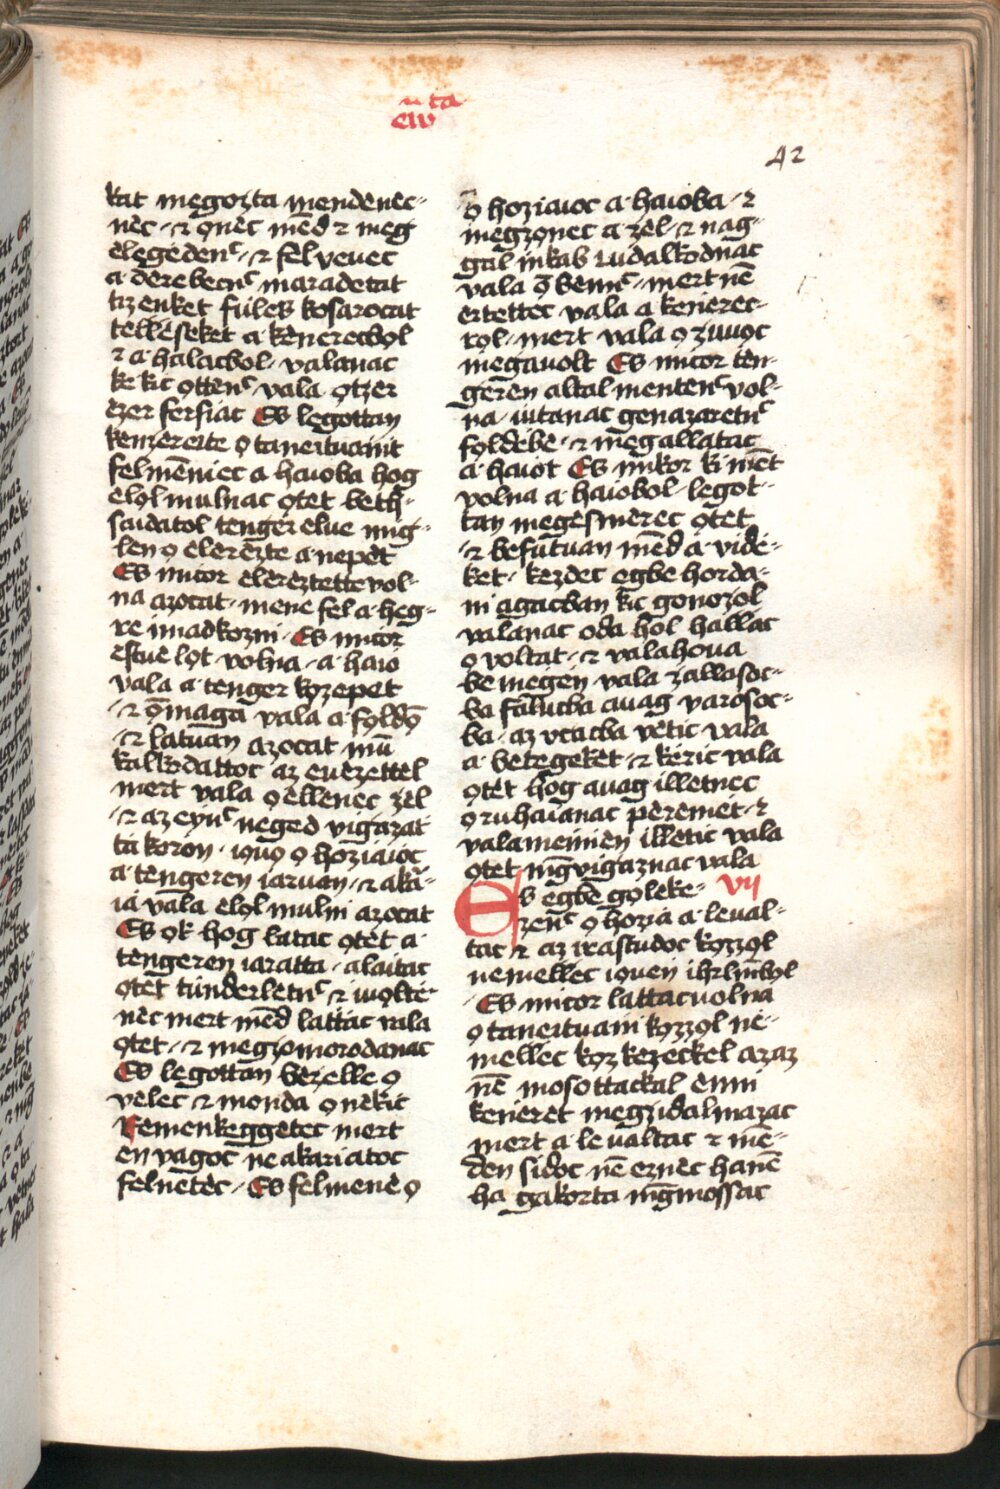 ewta
42
kat megozta mendenec-
nec · ⁊ ọnèc mēd ⁊ meg
elegèdenc · ⁊ fèl vèuec
a dèrèbecnc maradètat
tizenkèt fúlès kosarocat
tellèsèkèt a kèńèrècbọl
⁊ a halacbol · valanac
kè kic ọttenc vala ọtzèr
èzèr fèrfiac Es legottan
kènzereite ọ taneituańit
felmēniec a haioba hog
èlọl mulnac ọtèt bèth-
saidatol tengèr èlue mig-
len ọ èlèrèztè a nepèt
Es micor èlèrèztètte vol-
na azocat · mène fèl a hèg-
re imadkozni · Es micor
estuè lọt volna · a haio
vala a tengèr kọzepèt
⁊ ọ maga vala a fọldọ̄
⁊ latuan azocat mū
kalkodattoc az euezettèl
mert vala ọ èllènec zèl
⁊ az eync nègèd vigazat
ta koron · iọuọ ọ hoziaioc
a tengèren iaruan · ⁊ aka-
ia vala èlọl mulni azocat
Es ọk hog latac ọtèt a
tèngeren iaratta · alaitac
ọtèt tündèrlètnc ⁊ iuọlte-
nèc mert mēd lattac vala
ọtèt · ⁊ megzomorodanac
Es legottan bezelle ọ
vèlec ⁊ monda ọnèkic
Remenkèggètec mert
èn vagoc ne akariatoc
felnètèc · Es felmenè ọ
ọ hoziaioc a haioba · ⁊
megzọnec a zèl · ⁊ nag-
gal inkab čudalkodnac
vala ọ bennc · mert nē
ertèttec vala a keńèrec-
rọl · mert vala ọ zuuọc
megauolt Es micor ten-
gèren altal mentenc vol-
na · iutanac genazaretnc
fọldèbe · ⁊ mègallatac
a haiot Es mikor ki mēt
volna a haiobol · legot-
tan mègesmerec ọtèt
⁊ befutuan mēd a vide-
kèt · kezdec egbè horda-
ni agacban kic gonozol
valanac oda hol hallac
ọ voltat · ⁊ valahoua
be mègèn vala zallasoc-
ba faluċba auag varosoc-
ba · az vcacba vètic vala
a betegèkèt · ⁊ kèric vala
ọtèt hog auag illètnec
ọ ruhaianac pèrèmèt · ⁊
valameńièn illètic vala
ọtet mg̅vigaznac vala
Es egbè gọlèkè- vij
zenc ọ hozia a leual-
tac ⁊ az irastudoc kọzzọl
nèmèllec iọuèn ih̄rlm̄bọl
Es micor lattac volna
ọ taneituańi kọzzọl ne-
mèllec kọz kezèckel azaz
nē mosottackal ènni
kèńèrèt mègzidalmazac
mert a leualtac ⁊ mē-
dèn sidoc nē eznèc hanē
ha gakorta mg̅mossac